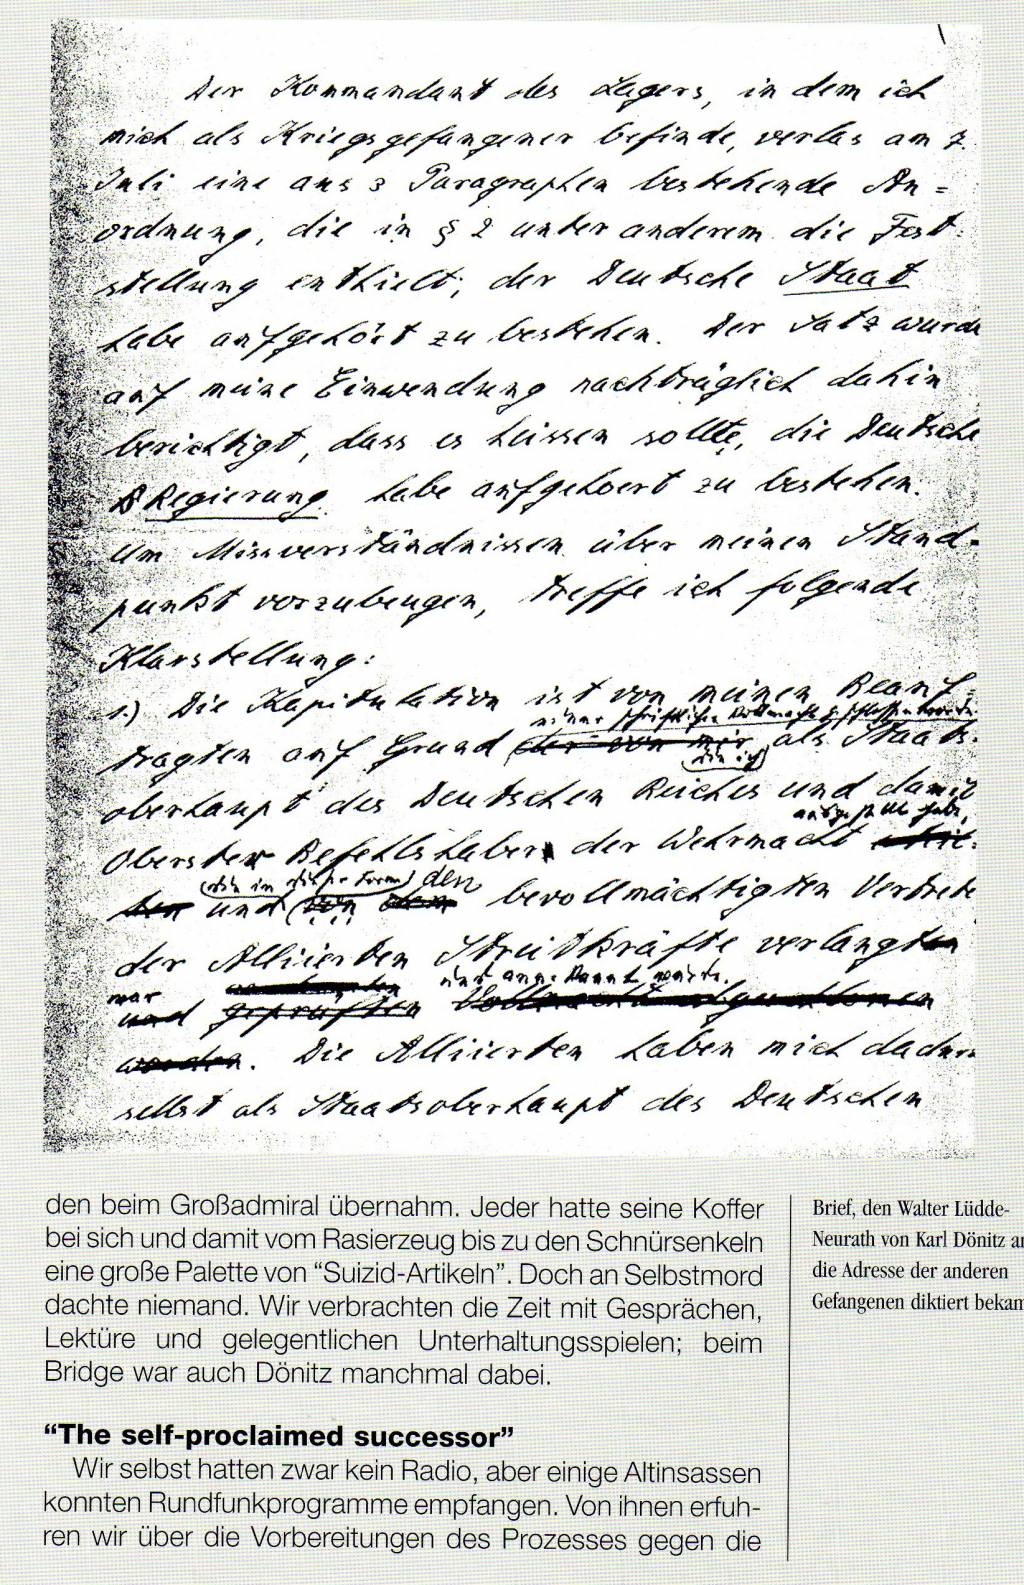 Der Kommandant des Lagers, in dem ich
mich als Kriegsgefangener befinde, verlas am 7.
Juli eine aus 3 Paragraphen bestehende An=
ordnung, die in § 2 unter anderem die Fest-
stellung enthielt, der Deutsche Staat
habe aufgehört zu bestehen. Der Satz wurde
auf meine Einwendung nachträglich dahin
berichtigt, dass es heissen sollte, die Deutsche
Regierung habe aufgehoert zu bestehen.
Um Missverständnissen über meinen Stand-
punkt vorzubeugen, treffe ich folgende
Klarstellung:
1.) Die Kapitulation ist von meinen Beauf=
meiner schriftlichen Vollmacht geschlossen worden
tragten auf Grund der von mir als Staats-
die ich
oberhaupt des Deutschen Reiches und damit
ausgestellt habe,
Oberster Befehlshaber der Wehrmacht
(die in dieser Form) den
und von dem bevollmächtigten Vertreter
der Alliierten Streitkräfte verlangten
war und anerkannt wurde.
und geprüften
worden. Die Alliierten haben mich dadurch
selbst als Staatsoberhaupt des Deutschen
den beim Großadmiral übernahm. Jeder hatte seine Koffer
bei sich und damit vom Rasierzeug bis zu den Schnürsenkeln
eine große Palette von “Suizid-Artikeln”. Doch an Selbstmord
dachte niemand. Wir verbrachten die Zeit mit Gesprächen,
Lektüre und gelegentlichen Unterhaltungsspielen; beim
Bridge war auch Dönitz manchmal dabei.
“The self-proclaimed successor”
Wir selbst hatten zwar kein Radio, aber einige Altinsassen
konnten Rundfunkprogramme empfangen. Von ihnen erfuh-
ren wir über die Vorbereitungen des Prozesses gegen die
Brief, den Walter Lüdde-
Neurath von Karl Dönitz an
die Adresse der anderen
Gefangenen diktiert bekam